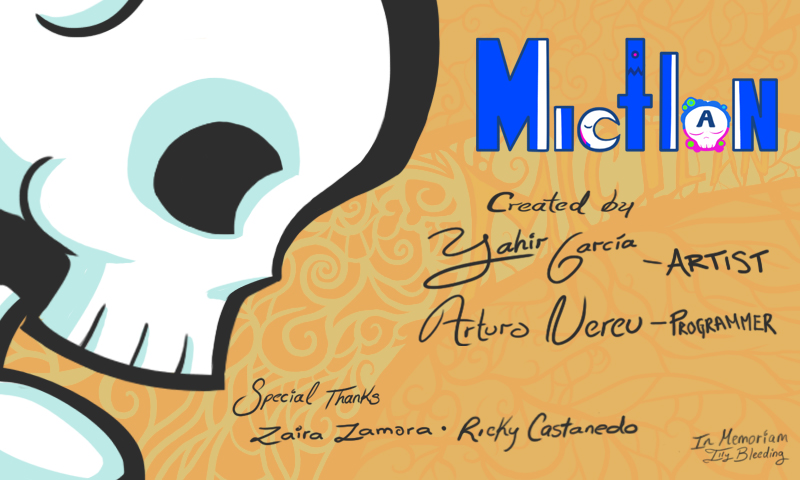 Mictlan
Created by
Yahir García - ARTIST
Arturo Nereu - PROGRAMMER
Special Thanks
Zaira Zamora · Ricky Castanedo
In Memoriam
Illy Bleeding